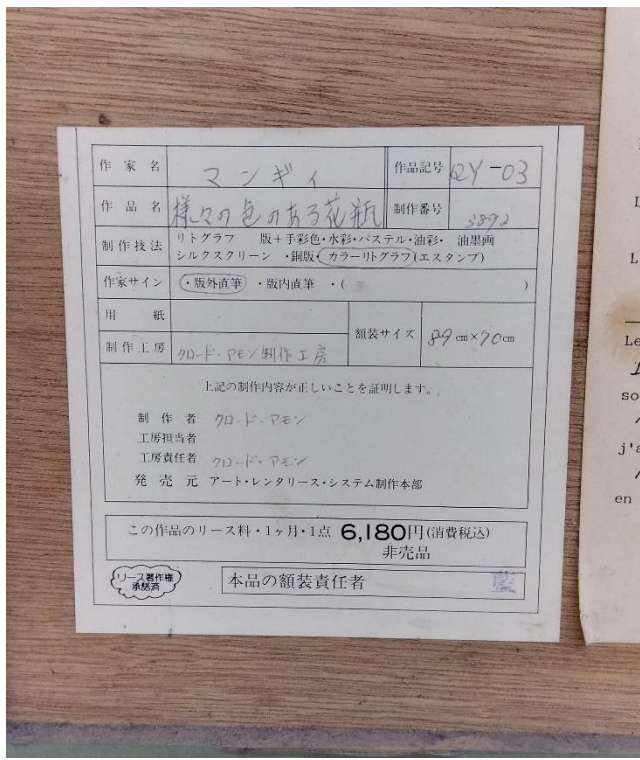 作家名 マンギィ 作品記号 QY-03
作品名 様々の色のある花瓶 制作番号 3892
制作技法 リトグラフ 版+手彩色・水彩・パステル・油彩・ 油墨画
シルクスクリーン ・銅版・カラーリトグラフ(エスタンプ)
作家サイン ・版外直筆 ・版内直筆 ・( )
用紙
額装サイズ 89cm×70cm
制作工房 クロード・アモン制作工房
上記の制作内容が正しいことを証明します。
制作者 クロード・アモン
工房担当者
工房責任者 クロード・アモン
発売元 アート・レンタリース・システム制作本部
この作品のリース料・1ヶ月・1点 6,180円(消費税込)
非売品
リース著作権
承諾済
本品の額装責任者
L
L
Le
so
j'a
en